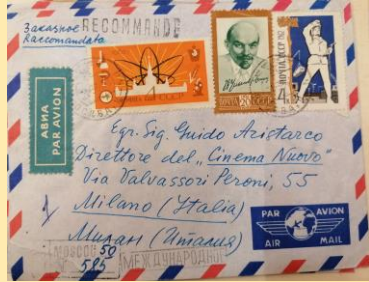 Заказное RECOMMANDÉ
Raccomandata
АВИА
PAR AVION
ПОЧТА СССР
Egr. Sig. Guido Aristarco
Direttore del „Cinema Nuovo"
Via Valvassori Peroni, 55
Milano (Italia)
Милан (Италия)
PAR AVION
AIR MAIL
MOSCOU 50
585
МЕЖДУНАРОДНОЕ